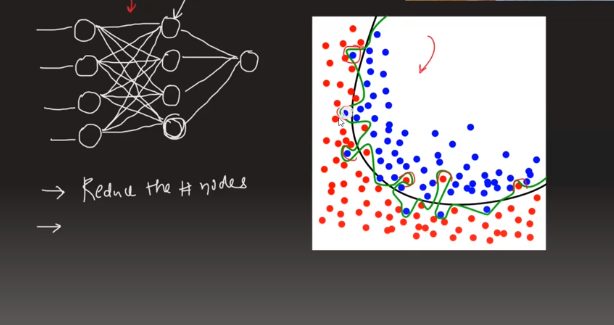 → Reduce the # nodes
→